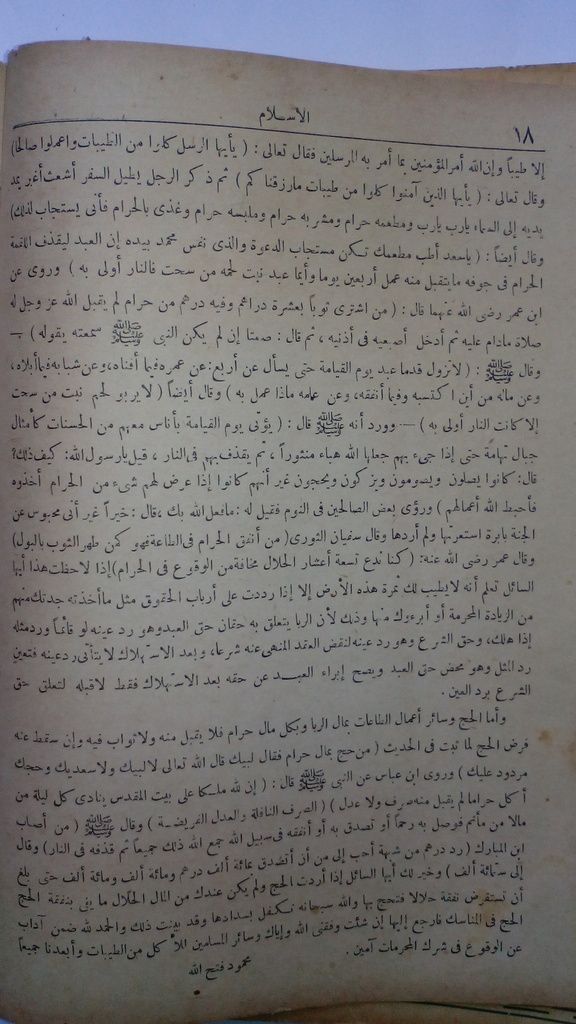 الإسلام
١٨
إلا طيباً وإن الله أمر المؤمنين بما أمر به المرسلين فقال تعالى : ( يأيها الرسل كلوا من الطيبات واعملوا صالحا)
وقال تعالى : ( يأيها الذين آمنوا كلوا من طيبات مارزقناكم ) ثم ذكر الرجل يطيل السفر أشعث أغبر يمد
يديه إلى السماء يارب يارب ومطعمه حرام ومشربه حرام وملبسه حرام وغذى بالحرام فأنى يستجاب لذلك)
وقال أيضاً : ( ياسعد أطب مطعمك تكن مستجاب الدعوة والذى نفس محمد بيده إن العبد ليقذف اللقمة
الحرام فى جوفه مايتقبل منه عمل أربعين يوما وأيما عبد نبت لحمه من سحت فالنار أولى به ) وروى عن
ابن عمر رضى الله عنهما قال : ( من اشترى ثوباً بعشرة دراهم وفيه درهم من حرام لم يقبل الله عز وجل له
صلاة مادام عليه ثم أدخل أصبعيه فى أذنيه ، ثم قال : صمتا إن لم يكن النبى ﷺ سمعته يقوله ) —
وقال ﷺ : ( لاتزول قدما عبد يوم القيامة حتى يسأل عن أربع: عن عمره فيما أفناه، وعن شبابه فيما أبلاه،
وعن ماله من أين اكتسبه وفيما أنفقه، وعن علمه ماذا عمل به ) وقال أيضاً ( لايربو لحم نبت من سحت
إلا كانت النار أولى به ) — وورد أنه ﷺ قال : ( يؤتى يوم القيامة بأناس معهم من الحسنات كأمثال
جبال تهامة حتى إذا جىء بهم جعلها الله هباء منثوراً ، ثم يقذف بهم فى النار ، قيل يارسول الله: كيف ذلك؟
قال: كانوا يصلون ويصومون ويزكون ويحجون غير أنهم كانوا إذا عرض لهم شىء من الحرام أخذوه
فأحبط الله أعمالهم ) ورؤى بعض الصالحين فى النوم فقيل له : مافعل الله بك ، قال : خيراً غير أنى محبوس عن
الجنة بابرة استعرتها ولم أردها وقال سفيان الثورى ( من أنفق الحرام فى الطاعة فهو كمن طهر الثوب بالبول)
وقال عمر رضى الله عنه: ( كنا ندع تسعة أعشار الحلال مخافة من الوقوع فى الحرام) إذا لاحظت هذا أيها
السائل تعلم أنه لايطيب لك ثمرة هذه الأرض إلا إذا رددت على أرباب الحقوق مثل ماأخذته جدتك منهم
من الزيادة المحرمة أو أبرءوك منها وذلك لأن الربا يتعلق به حقان حق العبد وهو رد عينه لو قائماً ورد مثله
إذا هلك، وحق الشرع وهو رد عينه لنقض العقد المنهى عنه شرعا، وبعد الاستهلاك لايتأتى رد عينه فتعين
رد المثل وهو محض حق العبد ويصح إبراء العبد عن حقه بعد الاستهلاك فقط لاقبله لتعلق حق
الشرع برد العين .
وأما الحج وسائر أعمال الطاعات بمال الربا وبكل مال حرام فلا يقبل منه ولا ثواب فيه وإن سقط عنه
فرض الحج لما ثبت فى الحديث ( من حج بمال حرام فقال لبيك قال الله تعالى لالبيك ولاسعديك وحجك
مردود عليك ) وروى ابن عباس عن النبى ﷺ قال : ( إن لله ملكا على بيت المقدس ينادى كل ليلة من
أكل حراما لم يقبل منه صرف ولا عدل ) ( الصرف النافلة والعدل الفريضة ) وقال ﷺ ( من أصاب
مالا من مأثم فوصل به رحماً أو تصدق به أو أنفقه فى سبيل الله جمع الله ذلك جميعاً ثم قذفه فى النار) وقال
ابن المبارك ( رد درهم من شبهة أحب إلى من أن أتصدق بمائة ألف درهم ومائة ألف ومائة ألف حتى بلغ
إلى ستمائة ألف ) وخير لك أيها السائل إذا أردت الحج ولم يكن عندك من المال الحلال ما يفى بنفقة الحج
أن تستقرض نفقة حلالا فتحج بها والله سبحانه تكفل بسدادها وقد بينت ذلك والحمد لله ضمن آداب
الحج فى المناسك فارجع إليها إن شئت وفقنى الله وإياك وسائر المسلمين للأكل من الطيبات وأبعدنا جميعاً
عن الوقوع فى شرك المحرمات آمين .
محمود فتح الله